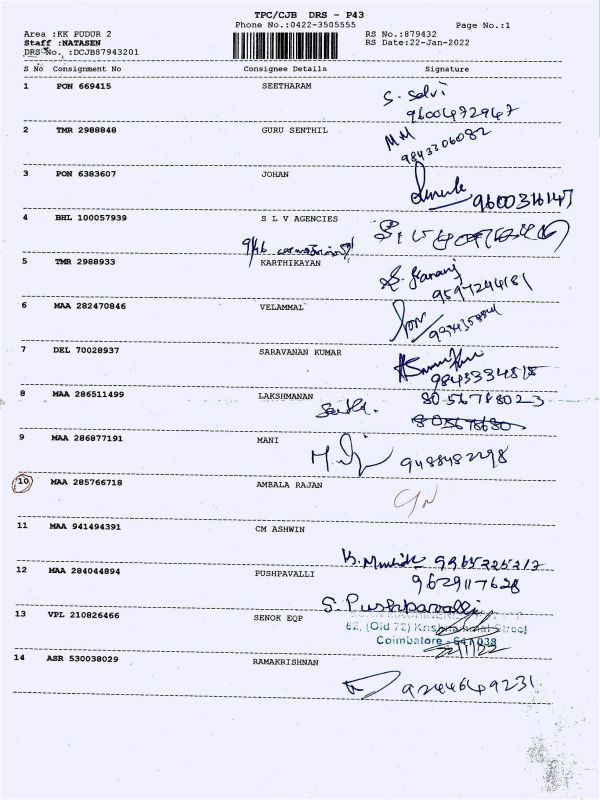 TPC/CJB DRS - P43
Phone No.:0422-3505555
Page No.:1
Area :KK PUDUR 2
RS No.:879432
Staff :NATASEN
RS Date:22-Jan-2022
DRS No. :DCJB87943201
S No Consignment No Consignee Details Signature
1 PON 669415 SEETHARAM
S. Selvi
9600472947
2 TMR 2988848 GURU SENTHIL
MM
9843306082
3 PON 6383607 JOHAN
4 BHL 100057939 S L V AGENCIES
5 TMR 2988933 KARTHIKAYAN
9597244181
6 MAA 282470846 VELAMMAL
7 DEL 70028937 SARAVANAN KUMAR
9843334818
8 MAA 286511499 LAKSHMANAN
8056788023
9 MAA 286877191 MANI
9488482298
10 MAA 285766718 AMBALA RAJAN
11 MAA 941494391 CM ASHWIN
9965225212
12 MAA 284044894 PUSHPAVALLI
9629117628
S. Pushpavalli
13 VPL 210826466 SENOK EQP
62, (Old 72) Krishnammal Street
Coimbatore - 641 038
22/1/22
14 ASR 530038029 RAMAKRISHNAN
9244649231